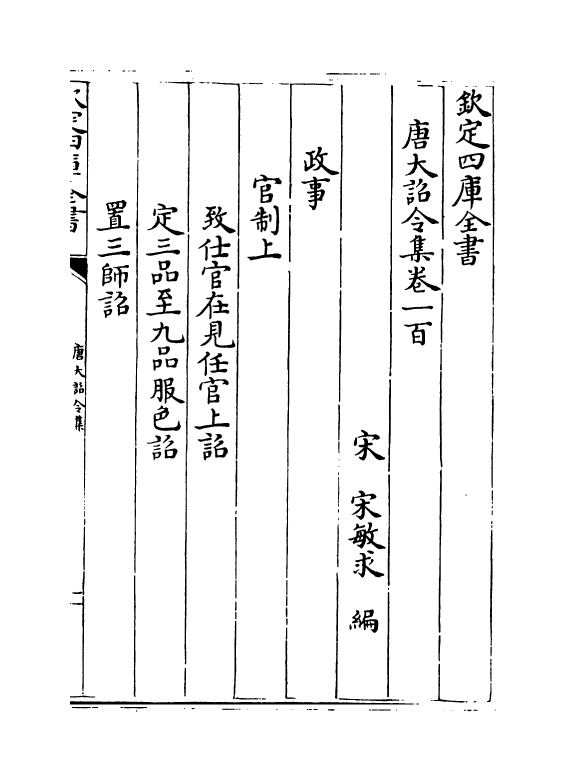 欽定四庫全書
唐大詔令集卷一百
宋 宋敏求 編
政事
官制上
致仕官在見任官上詔
定三品至九品服色詔
置三師詔
欽定四庫全書
唐大詔令集